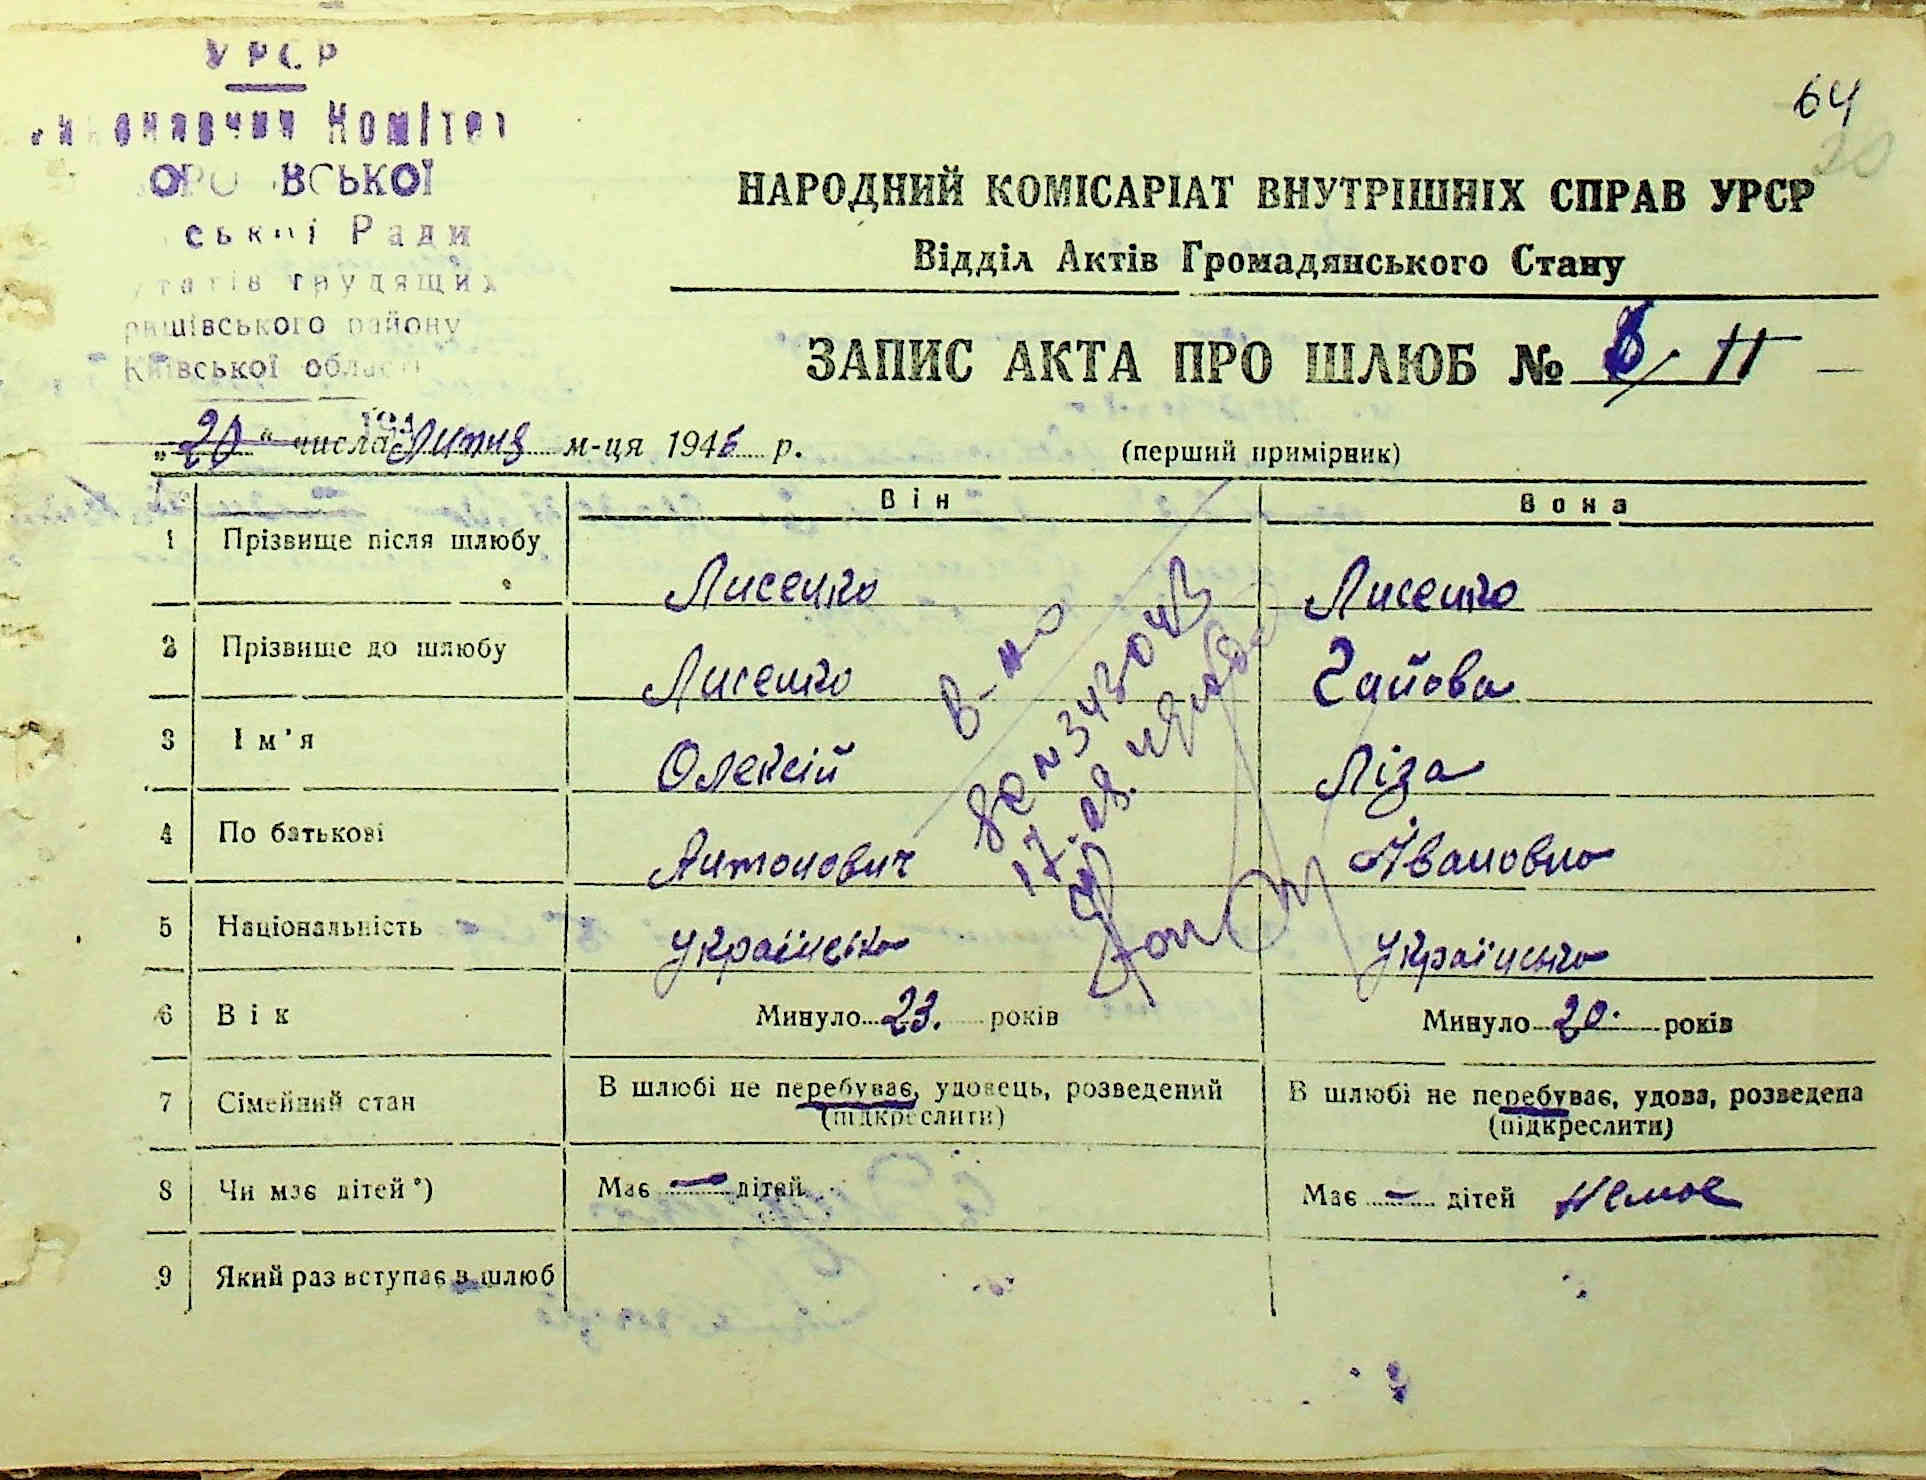 УРСР
Комітет
ВСЬКОЇ
Ради
трудящих
району
Київської області
64
20
НАРОДНИЙ КОМІСАРІАТ ВНУТРІШНІХ СПРАВ УРСР
Відділ Актів Громадянського Стану
ЗАПИС АКТА ПРО ШЛЮБ № 11
„20" числа Липня м-ця 1945 р.
(перший примірник)
Він Вона
1 Прізвище після шлюбу Лисенко Лисенко
2 Прізвище до шлюбу Лисенко Гайова
3 Ім'я Олексій Ліза
4 По батькові Антонович Івановна
5 Національність Українська Українська
6 Вік Минуло 23. років Минуло 20. років
7 Сімейний стан В шлюбі не перебуває, удовець, розведений В шлюбі не перебуває, удова, розведена
(підкреслити) (підкреслити)
8 Чи має дітей*) Має — дітей Має — дітей Немає
9 Який раз вступає в шлюб
в-но
N 343043
17.